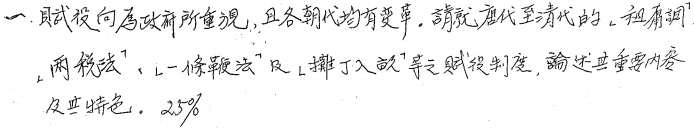 一. 賦役向為政府所重視,且各朝代均有變革。請就唐代至清代的「租庸調」
「兩稅法」、「一條鞭法」及「攤丁入畝」等之賦役制度,論述其重要內容
及其特色。25%